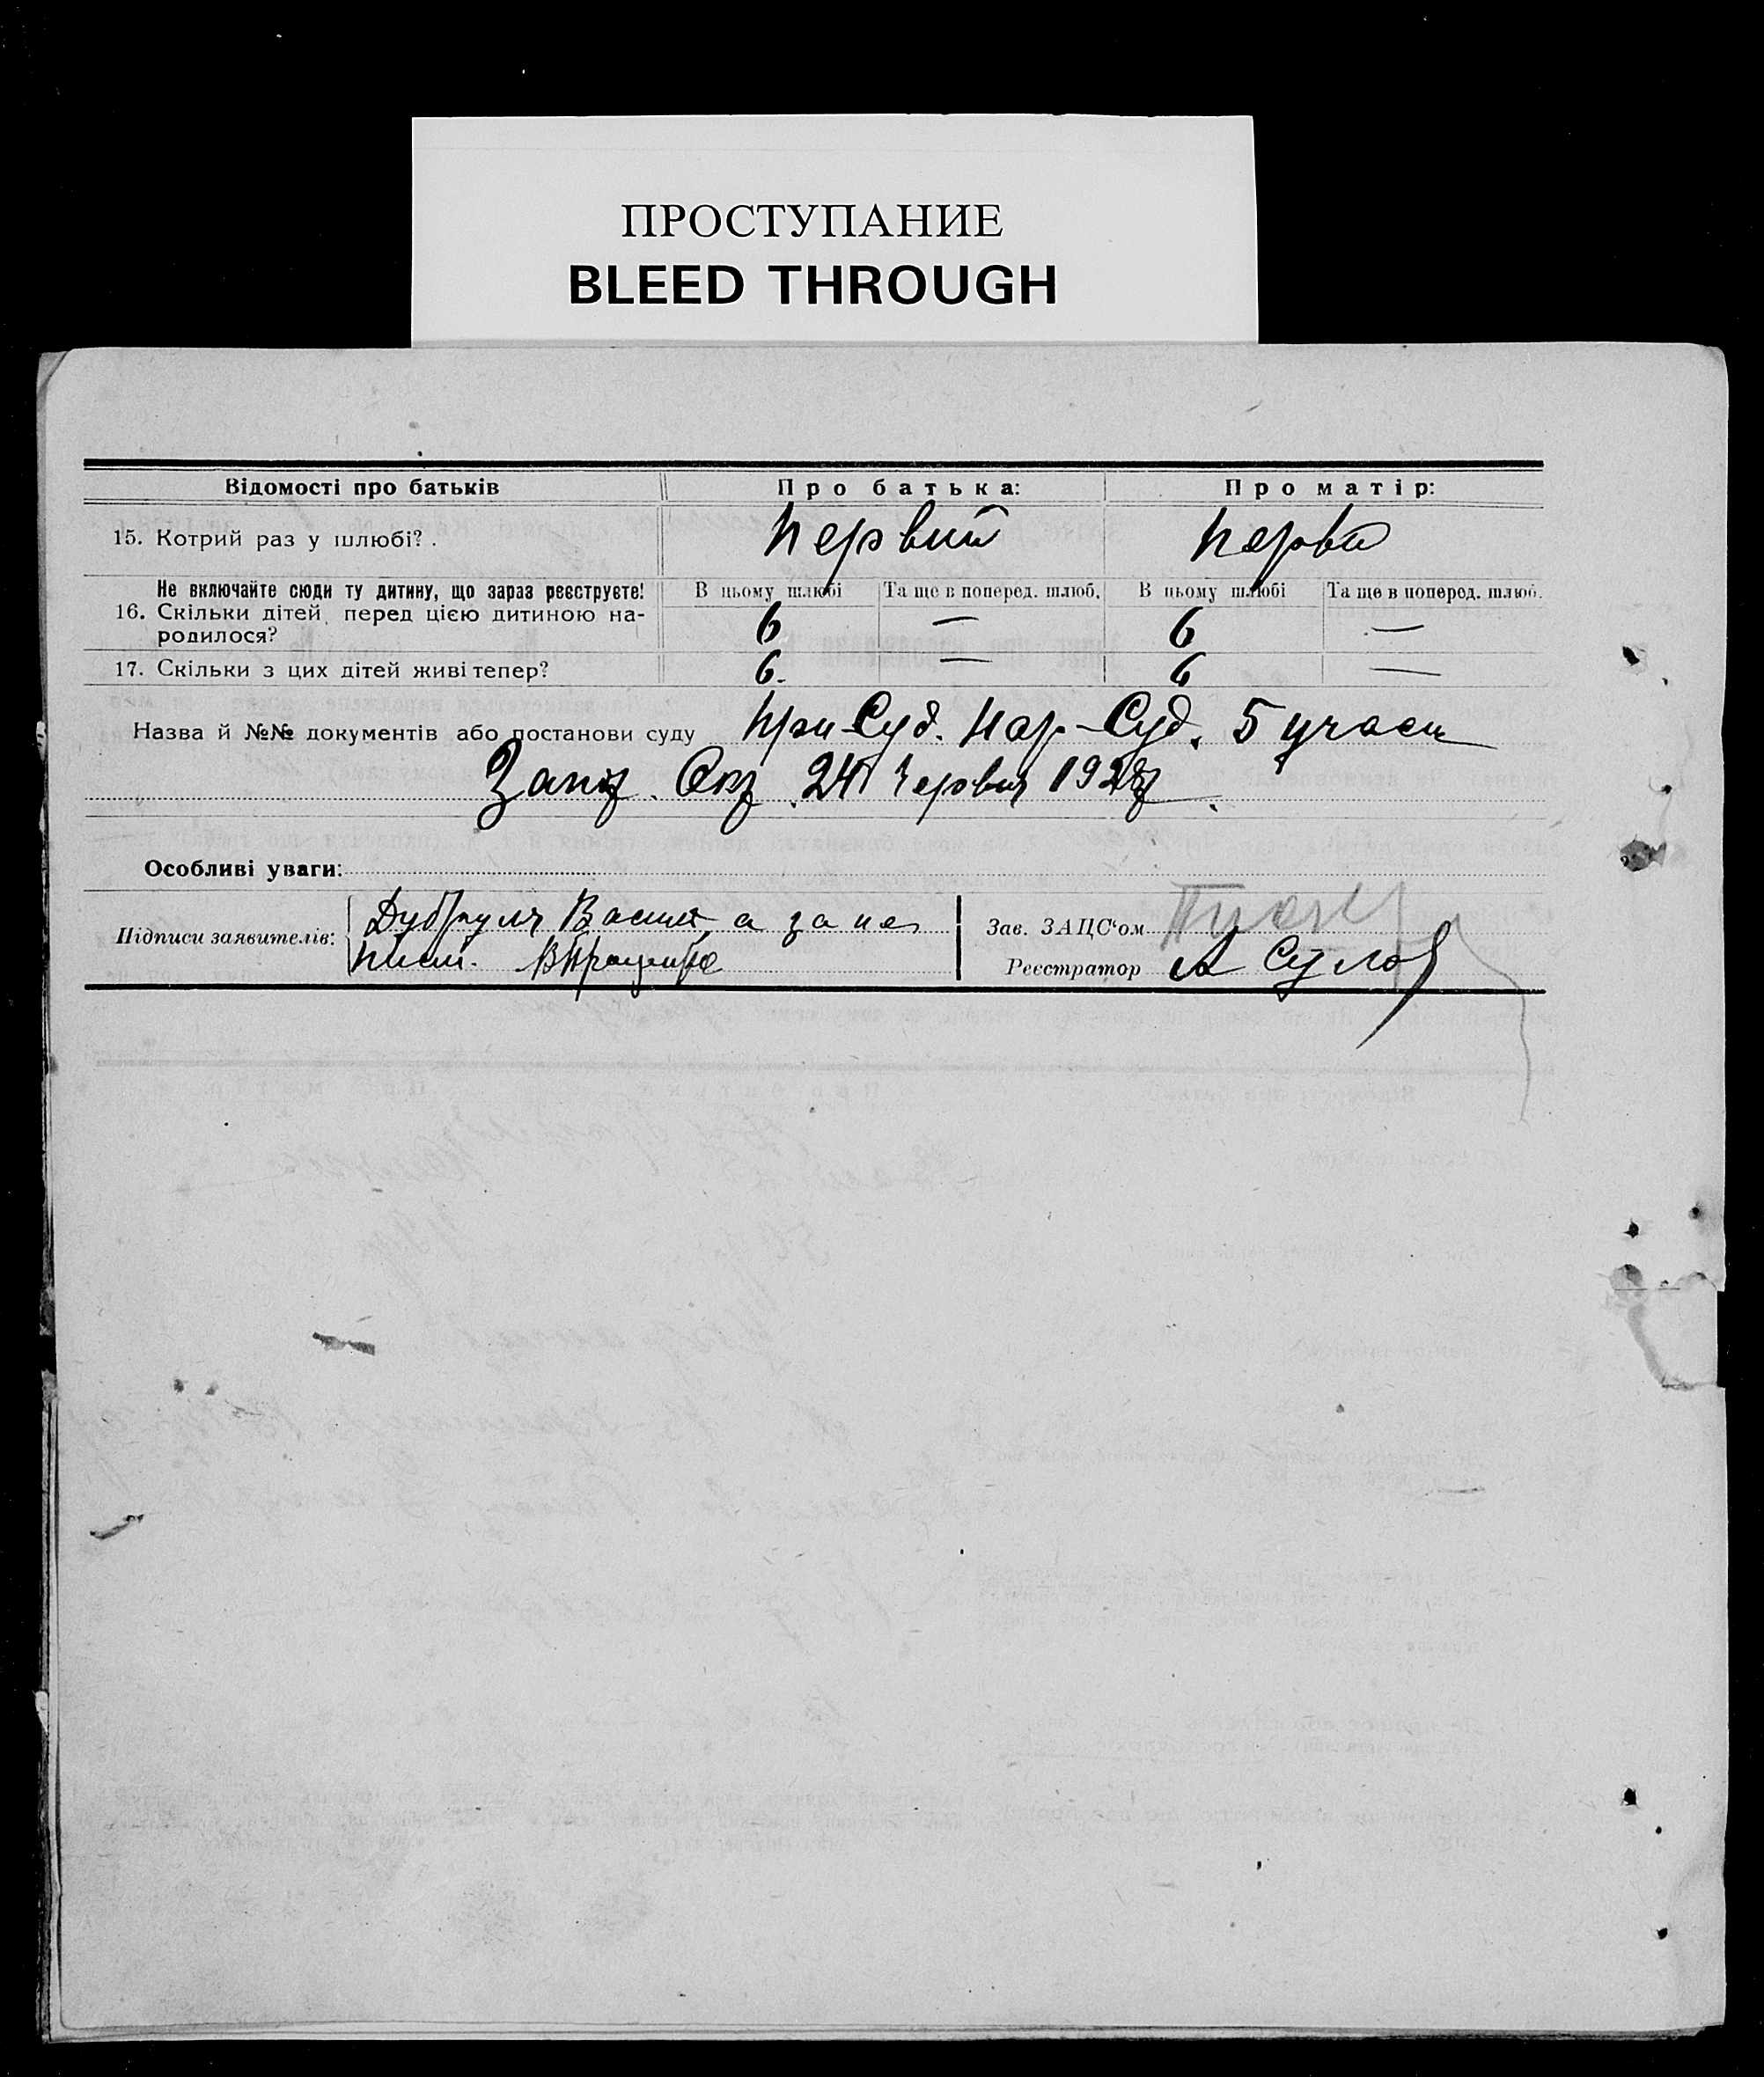 ПРОСТУПАНИЕ
BLEED THROUGH
Відомості про батьків Про батька: Про матір:
15. Котрий раз у шлюбі? . Первий Перви
Не включайте сюди ту дитину, що зараз реєструєте! В цьому шлюбі Та ще в поперед. шлюб. В цьому шлюбі Та ще в поперед. шлюб.
16. Скільки дітей перед цією дитиною на-
родилося? 6 — 6 —
17. Скільки з цих дітей живі тепер? 6. — 6 —
Назва й №№ документів або постанови суду При Суд. Нар-Суд. 5 участ
24 Червня
Особливі уваги:
Підписи заявителів: Василь а за не Зав. ЗАЦС‘ом
Реєстратор